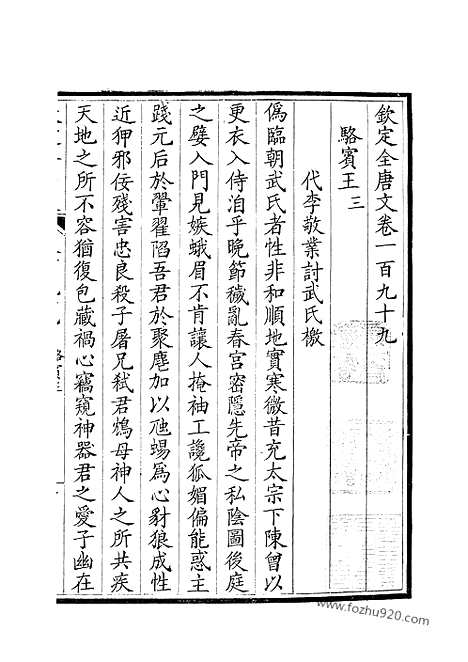 欽定全唐文卷一百九十九
駱賓王三
代李敬業討武氏檄
僞臨朝武氏者性非和順地實寒微昔充太宗下陳曾以
更衣入侍洎乎晚節穢亂春宮密隱先帝之私陰圖後庭
之嬖入門見嫉蛾眉不肯讓人掩袖工讒狐媚偏能惑主
踐元后於翬翟陷吾君於聚麀加以虺蜴爲心豺狼成性
近狎邪佞殘害忠良殺子屠兄弑君鴆母神人之所共疾
天地之所不容猶復包藏禍心竊窺神器君之愛子幽在
www.fozhu920.com